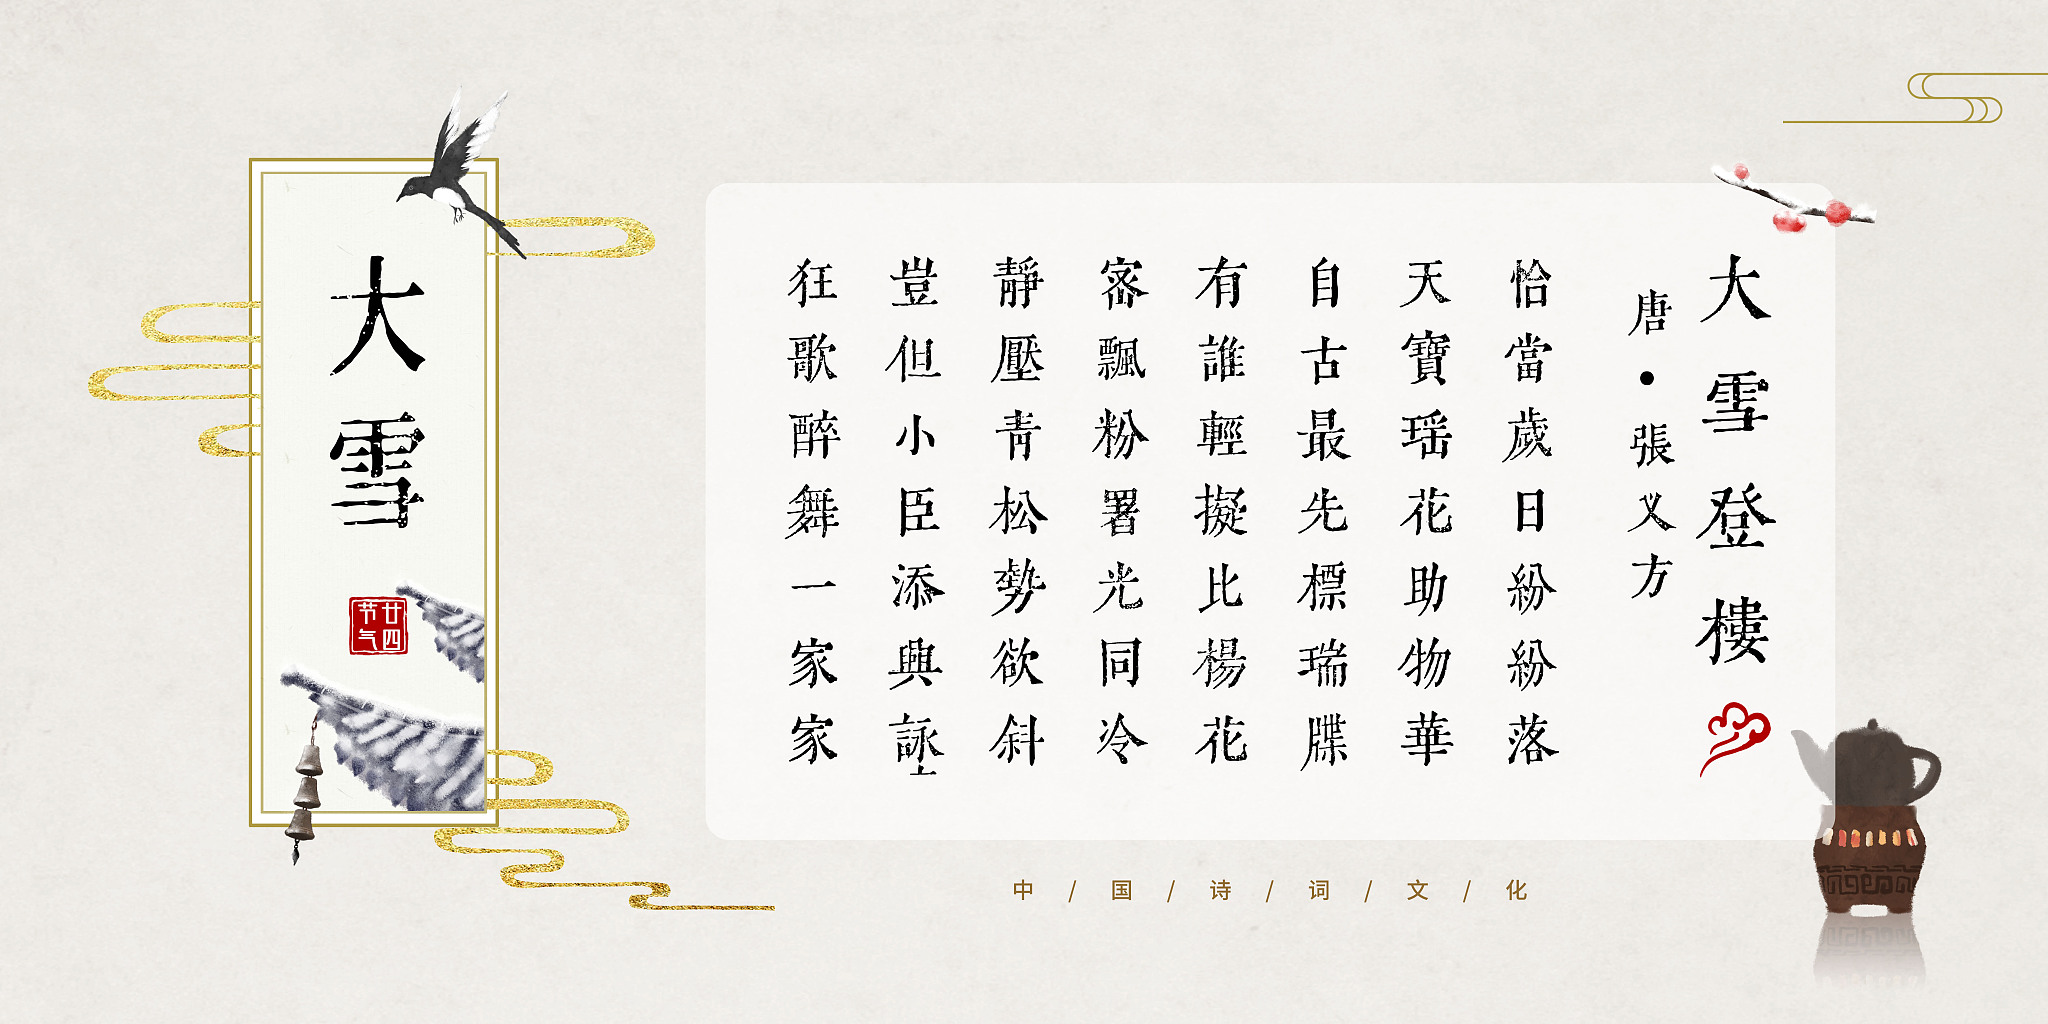 大雪
廿四
节气
大雪登樓
唐•張义方
恰當歲日紛紛落
天寶瑶花助物華
自古最先標瑞牒
有誰輕擬比楊花
密飄粉署光同冷
靜壓青松勢欲斜
豈但小臣添興詠
狂歌醉舞一家家
中/国/诗/词/文/化